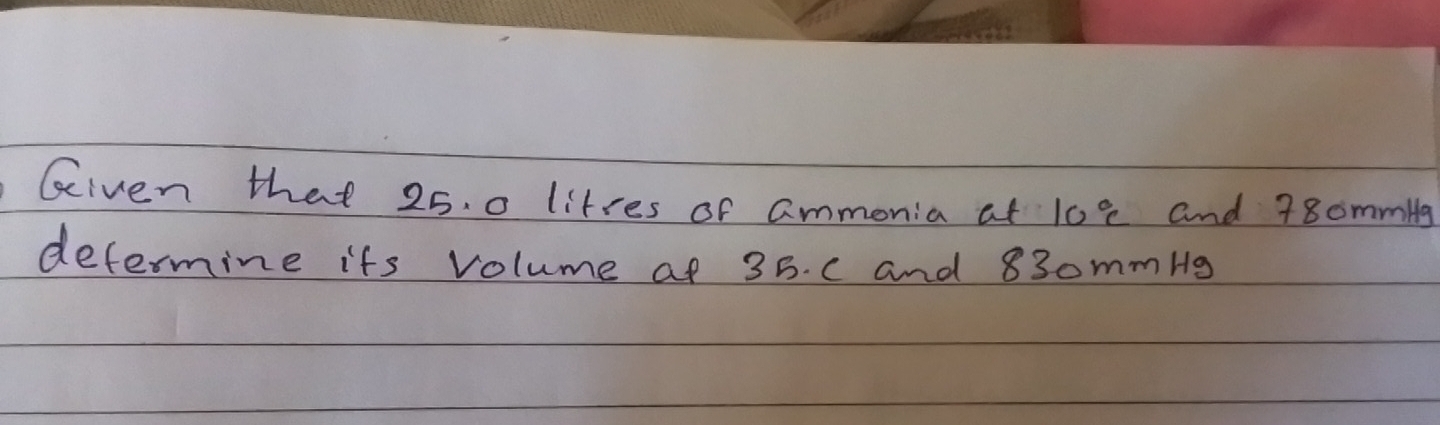 Given that 25.0 litres of ammonia at 10°c and 780mmHg
determine its volume at 35.c and 830mmHg